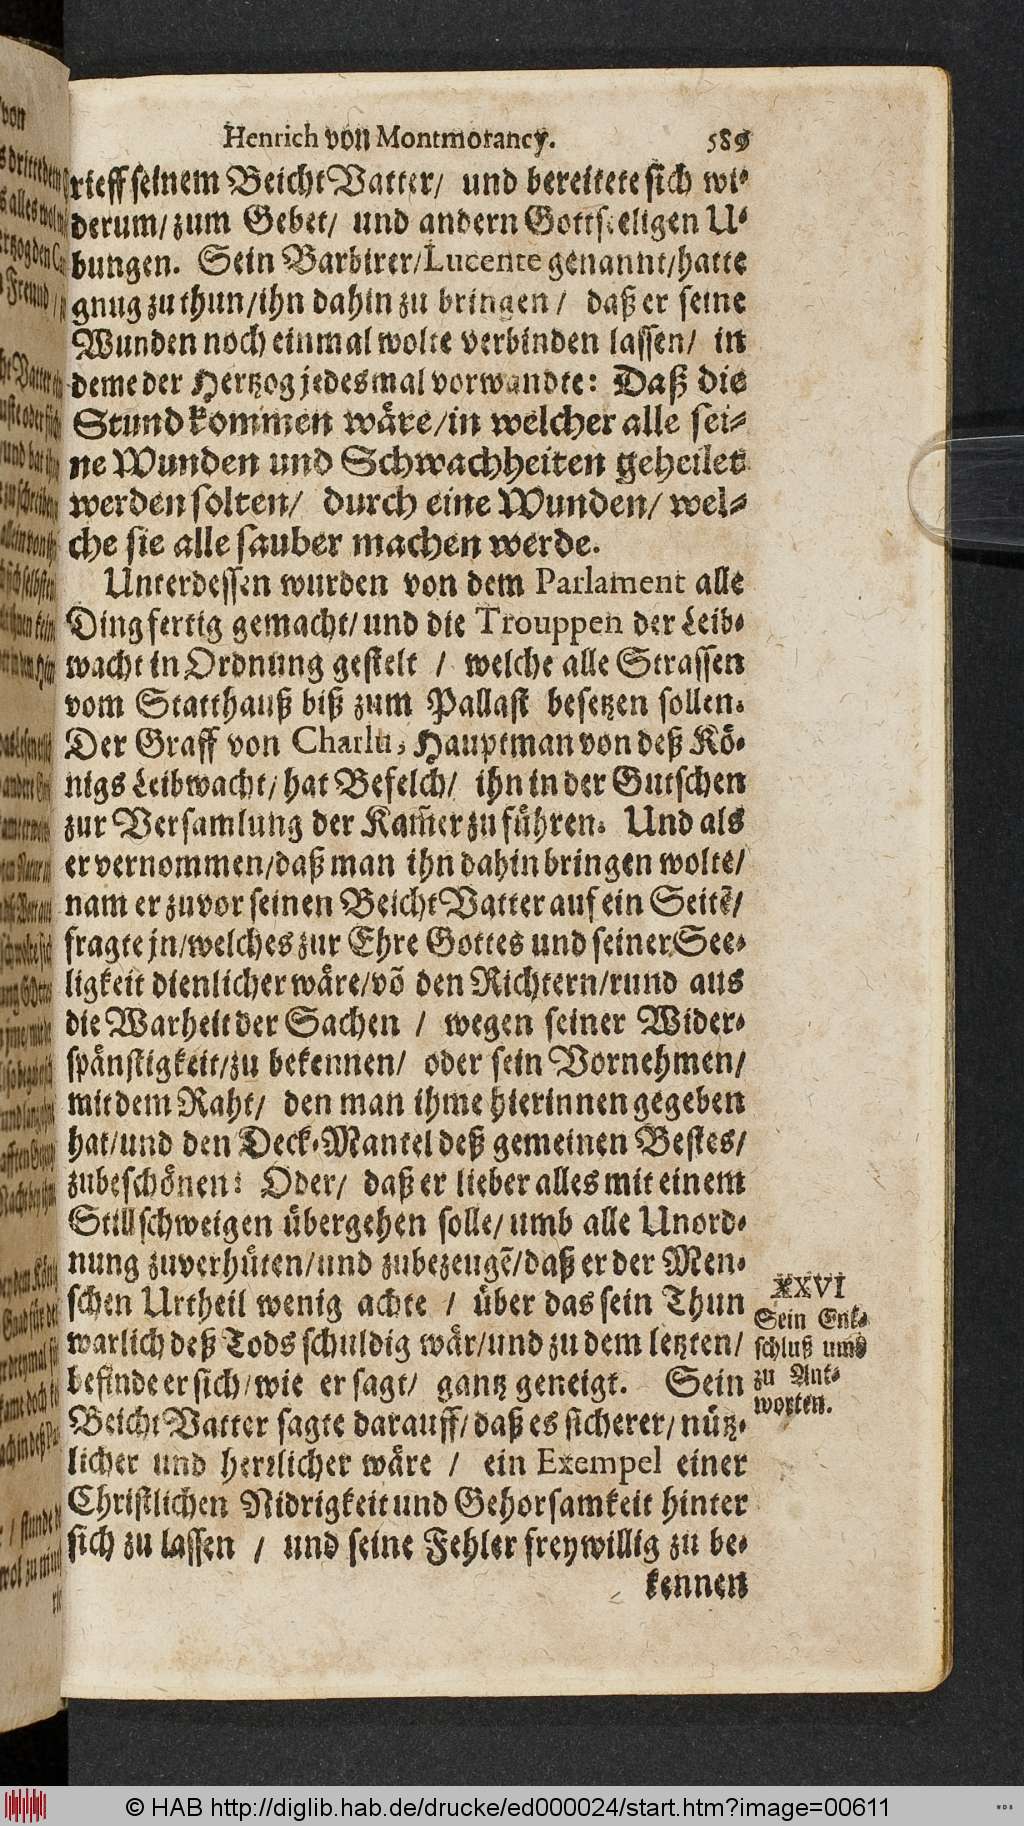 Henrich von Montmorancy. 589
rieff seinem Beicht Vatter/ und bereitete sich wi-
derum/ zum Gebet/ und andern Gottseeligen U-
bungen. Sein Barbirer/ Lucente genannt/ hatte
gnug zu thun/ ihn dahin zu bringen/ daß er seine
Wunden noch einmal wolte verbinden lassen/ in
deme der Hertzog jedesmal vorwandte: Daß die
Stund kommen wäre/ in welcher alle sei-
ne Wunden und Schwachheiten geheilet
werden solten/ durch eine Wunden/ wel-
che sie alle sauber machen werde.
Unterdessen wurden von dem Parlament alle
Ding fertig gemacht/ und die Trouppen der Leib-
wacht in Ordnung gestelt / welche alle Strassen
vom Statthauß biß zum Pallast besetzen sollen.
Der Graff von Charlu, Hauptman von deß Kö-
nigs Leibwacht/ hat Befelch/ ihn in der Gutschen
zur Versamlung der Kam̃er zu führen. Und als
er vernommen/ daß man ihn dahin bringen wolte/
nam er zuvor seinen Beicht Vatter auf ein Seitẽ/
fragte jn/ welches zur Ehre Gottes und seiner See-
ligkeit dienlicher wäre/ võ den Richtern/ rund aus
die Warheit der Sachen / wegen seiner Wider-
spänstigkeit/ zu bekennen/ oder sein Vornehmen/
mit dem Raht/ den man ihme hierinnen gegeben
hat/ und den Deck-Mantel deß gemeinen Bestes/
zubeschönen: Oder/ daß er lieber alles mit einem
Stillschweigen übergehen solle/ umb alle Unord-
nung zuverhüten/ und zubezeugẽ/ daß er der Men-
schen Urtheil wenig achte / über das sein Thun
warlich deß Tods schuldig wär/ und zu dem letzten/
befinde er sich/ wie er sagt/ gantz geneigt. Sein
Beicht Vatter sagte darauff/ daß es sicherer/ nütz-
licher und herrlicher wäre / ein Exempel einer
Christlichen Nidrigkeit und Gehorsamkeit hinter
sich zu lassen / und seine Fehler freywillig zu be-
kennen
XXVI
Sein Ent-
schluß umb
zu Ant-
worten.
© HAB http://diglib.hab.de/drucke/ed000024/start.htm?image=00611